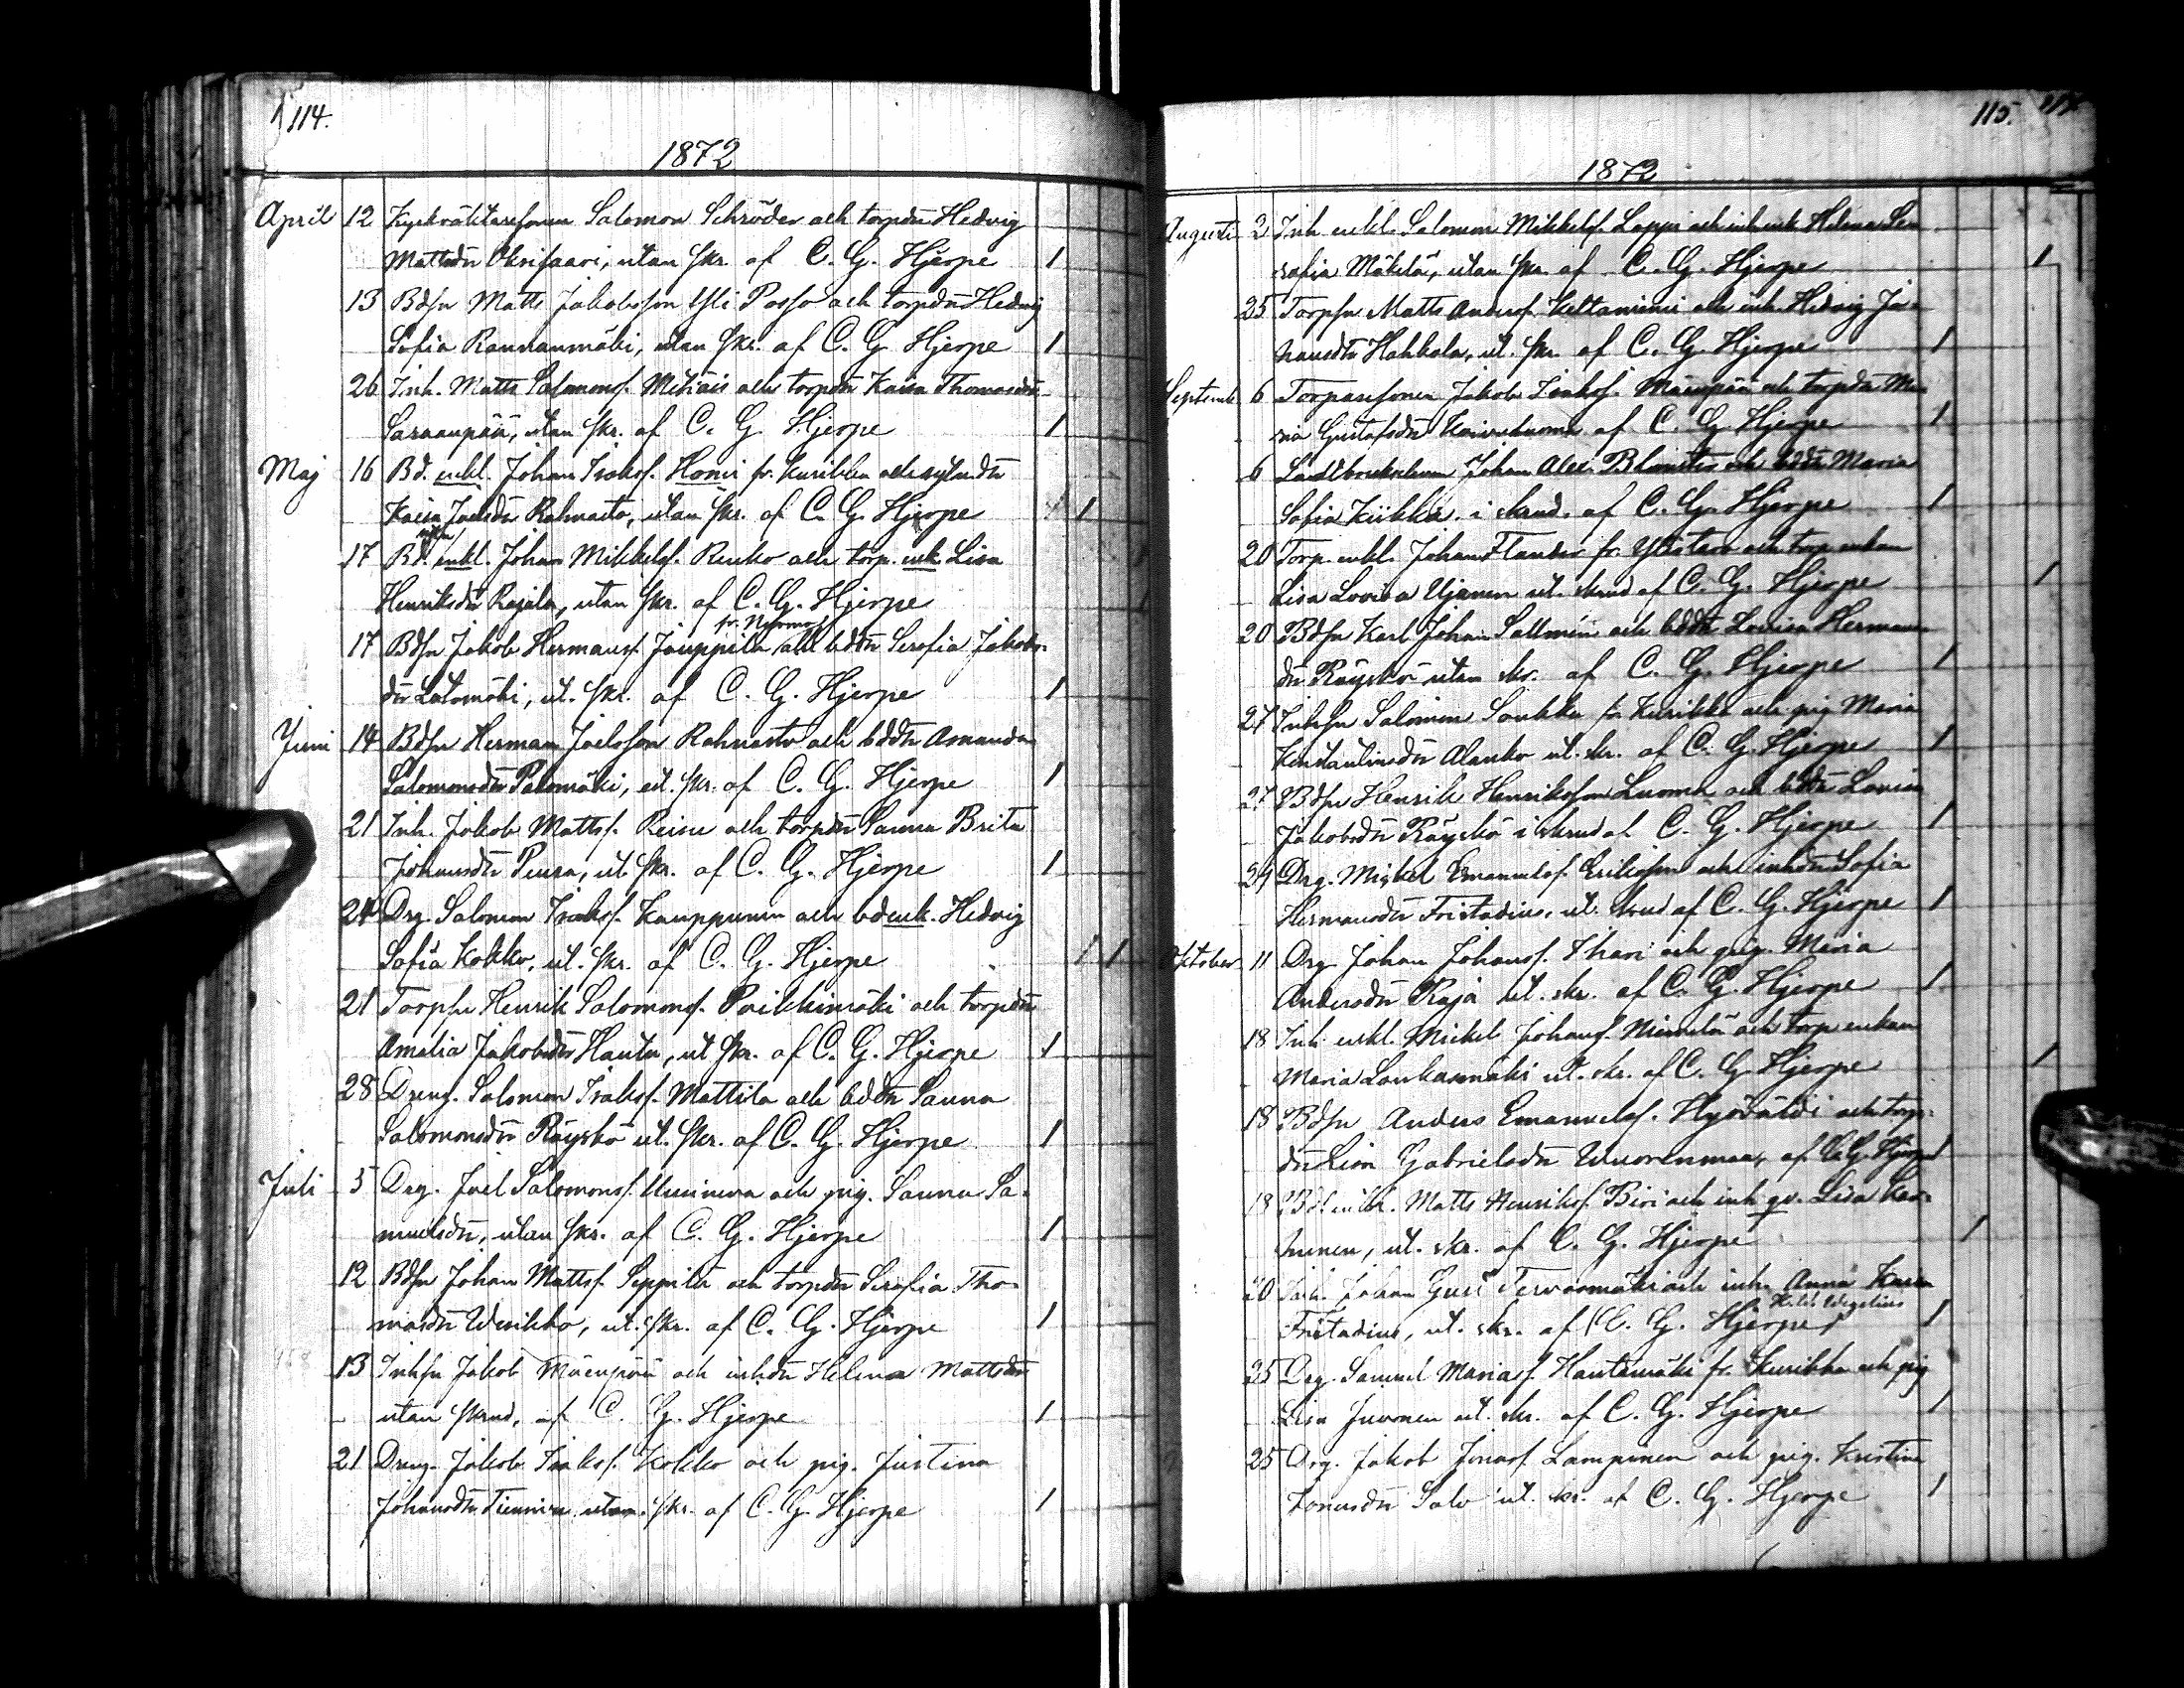 114.
1872
April 12 Kyrkväktaresonen Salomon Schröder och torpdn Hedvig
Mattsdtr Okrisaari, utan skr. af C. G. Hjerpe 1
13 Bdsn Matts Jakobsson Yli Posso och torpdn Hedvig
Sofia Rannanmäki, utan skr. af C. G. Hjerpe 1
26 Inh. Matts Salomonss. och torpdn Kaisa Thomasdtr
Sarvanpää, utan skr. af C. G. Hjerpe 1
Maj 16 Bd. enkl. Johan Isaks. Honni fr. Kurikka och
Kaisa Joelsdtr Rahnasto, utan skr. af C. G. Hjerpe 1 1
17 Bd. enkl. Johan Mikkels. Renko och torp. enk. Lisa
Henriksdtr Rajala, utan skr. af C. G. Hjerpe
fr. Nurmo
17 Bdsn Jakob Hermanss. Jouppila och bddtr Serafia Jakobs-
dtr Latomäki, ut. skr. af C. G. Hjerpe 1
Juni 14 Bdsn Herman Joelsson Rahnasto och bddtr Amanda
Salomonsdtr Palomäki, ut. skr. af C. G. Hjerpe 1
21 Inh. Jakob Mattss. Reini och torpdn Sanna Brita
Johansdtr Peura, ut. skr. af C. G. Hjerpe 1
24 Drg. Salomon Isaks. Kauppinen och bdenk. Hedvig
Sofia Kokko, ut. skr. af C. G. Hjerpe 1 1
21 Torpsn Henrik Salomons. Poikkimäki och torpdn
Amalia Jakobsdtr Hauta, ut skr. af C. G. Hjerpe 1
28 Dreng. Salomon Isaks. Mattila och bddtr Sanna
Salomonsdtr Röyskö ut. skr. af C. G. Hjerpe 1
Juli 5 Drg. Joel Salomons. och pig. Sanna Sa-
muelsdtr, utan skr. af C. G. Hjerpe 1
12 Bdsn Johan Mattss. Seppilä och torpdn Serafia Tho-
masdtr Wuikko, ut. skr. af C. G. Hjerpe 1
13 Inhsn Jakob Mäenpää och inhdtr Helena Mattsdtr
utan skrud, af C. G. Hjerpe 1
21 Dreng. Jakob Isaks. Kokko och pig. Justina
Johansdtr utan skr. af C. G. Hjerpe 1
115.
1872
Augusti 2 Inh enkl. Salomon Mikkels. Loppi och inh enk Helena Se-
rafia Mäkelä, utan skr. af C. G. Hjerpe 1
25 Torpsn Matts Anders. Keltaniemi och inh. Hedvig Jo-
hansdtr Hakkola, ut. skr. af C. G. Hjerpe 1
Septemb. 6 Torparesonen Jakob Isaks. Mäenpää och torpdn Ma-
ria Gustafsdtr Koivuluoma af C. G. Hjerpe 1
6 Johan Alex. och bddtr Maria
Sofia Kiikka i skrud. af C. G. Hjerpe 1
20 Torp. enkl. Johan Flander fr. Ylistaro och torp enkan
Lisa Lovisa Ujanen ut. skrud af C. G. Hjerpe 1
20 Bdsn Karl Johan Sallmén och bddtr Lovisa Hermans-
dtr Röyskö utan skr. af C. G. Hjerpe 1
27 Inhsn Salomon Soukka fr Kurikka och pig Maria
Alanko ut. skr. af C. G. Hjerpe 1
27 Bdsn Henrik Henriksson Luoma och bddtr Lovisa
Jakobsdtr Röyskö i skrud af C. G. Hjerpe 1
29 Drg. Mickel Emanuels. Eriksson och inhdtr Sofia
Hermansdtr Fristadius, ut. skrud af C. G. Hjerpe 1
Oktober 11 Drg. Johan Johans. Ihari och pig. Maria
Andersdtr Raja ut. skr. af C. G. Hjerpe 1
18 Inh. enkl. Mickel Johans. Niemelä och torp enkan
Maria Loukasmäki ut. skr. af C. G. Hjerpe 1
18 Bdsn Anders Emanuels. Hyövälti och torp-
dtr Lisa Gabrielsdtr Wuorenmaa, af C. G. Hjerpe 1
18 Matts Henriks. Biri och inh qv. Lisa Kar-
hunen, ut. skr. af C. G. Hjerpe 1
20 Inh. Johan Gust Tervasmäki och inh. Anna Karin
Fristadius, ut. skr. af (C. G. Hjerpe) 1
25 Drg. Samuel Marias. Hautamäki fr. Kurikka och pig
Lisa Juvonen ut. skr. af C. G. Hjerpe 1
25 Drg. Jakob Jonass. Lampinen och pig. Kristina
Jonasdtr Salo ut. skr. af C. G. Hjerpe 1